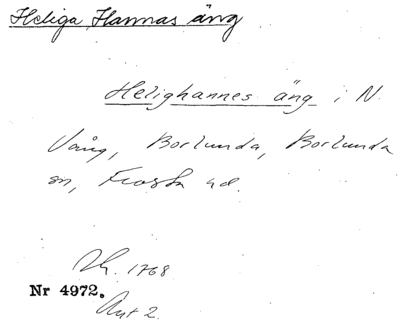 Heliga Hannas äng
Helighannes äng i N.
Vång, Borlunda, Borlunda
sn, Frosta hd.
Sk. 1768
Nr 4972.
Akt 2.